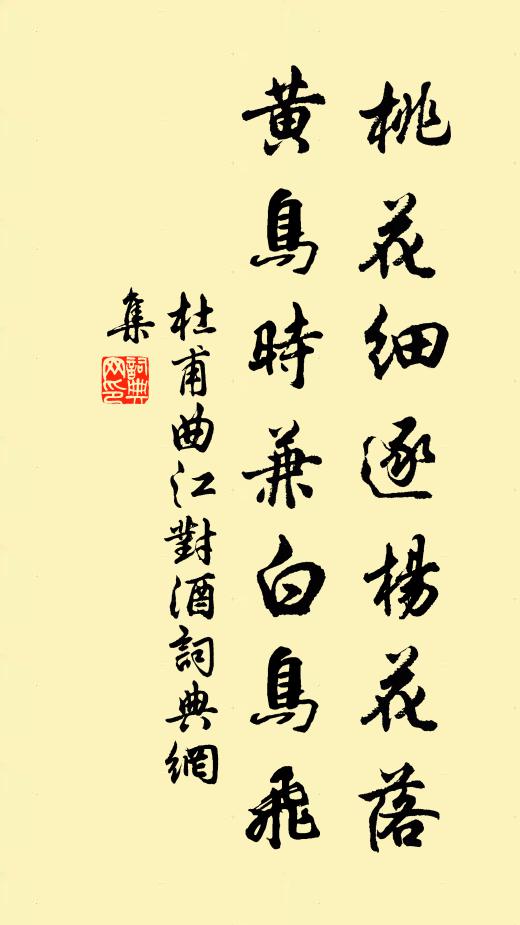 桃花細逐楊花落
黄鳥時兼白鳥飛
杜甫曲江對酒詞典網
集
詞典
网印